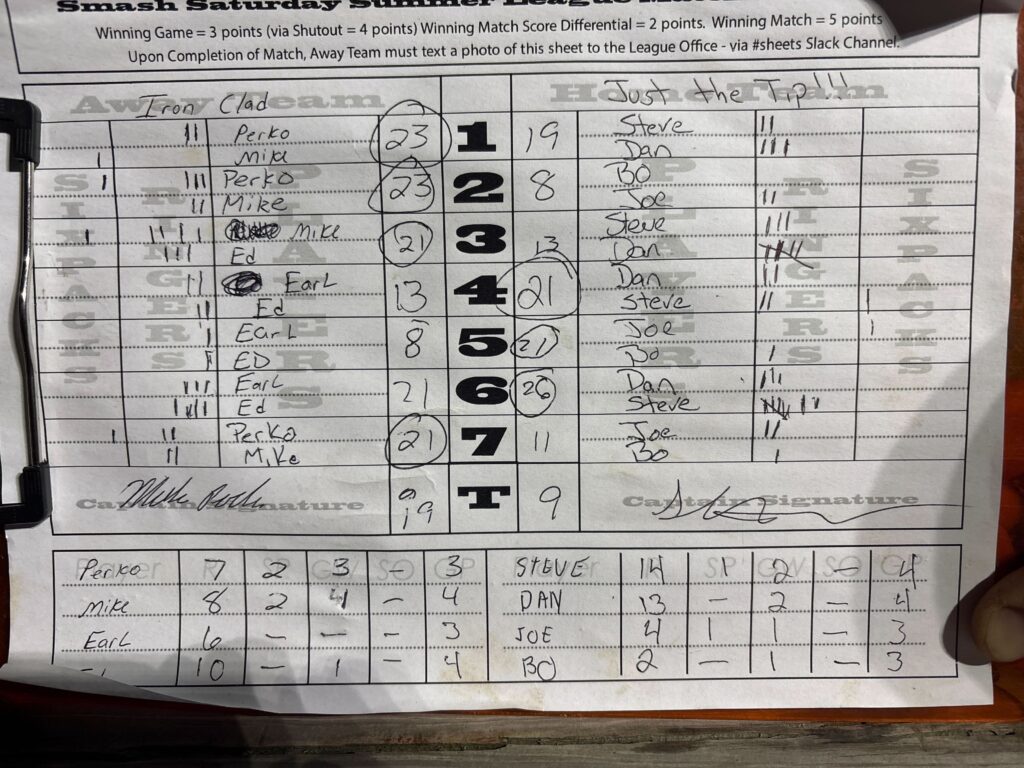 Smash Saturday Summer League
Winning Game = 3 points (via Shutout = 4 points) Winning Match Score Differential = 2 points. Winning Match = 5 points
Upon Completion of Match, Away Team must text a photo of this sheet to the League Office - via #sheets Slack Channel.
Away Team Home Team
Iron Clad Just the Tip!!!
SIXPACKS RINGERS PLAYERS PLAYERS RINGERS SIXPACKS
|| Perko 23 1 19 Steve ||
| Mike Dan |||
| ||| Perko 23 2 8 Bo
|| Mike Joe ||
| ||||| Mike 21 3 13 Steve |||
||| Ed Dan
|| Earl 13 4 21 Dan ||
|| Ed Steve || |
| Earl 8 5 21 Joe |
ED Bo |
||| Earl 21 6 26 Dan |||
|||| Ed Steve
| || Perko 21 7 11 Joe ||
|| Mike Bo |
Captain Signature 19 T 9 Captain Signature
Player R SP GW SO GP Player R SP GW SO GP
Perko 7 2 3 - 3 STEVE 14 1 2 - 4
Mike 8 2 4 - 4 DAN 13 - 2 - 4
Earl 6 - - - 3 JOE 4 1 1 - 3
10 - 1 - 4 BO 2 - 1 - 3